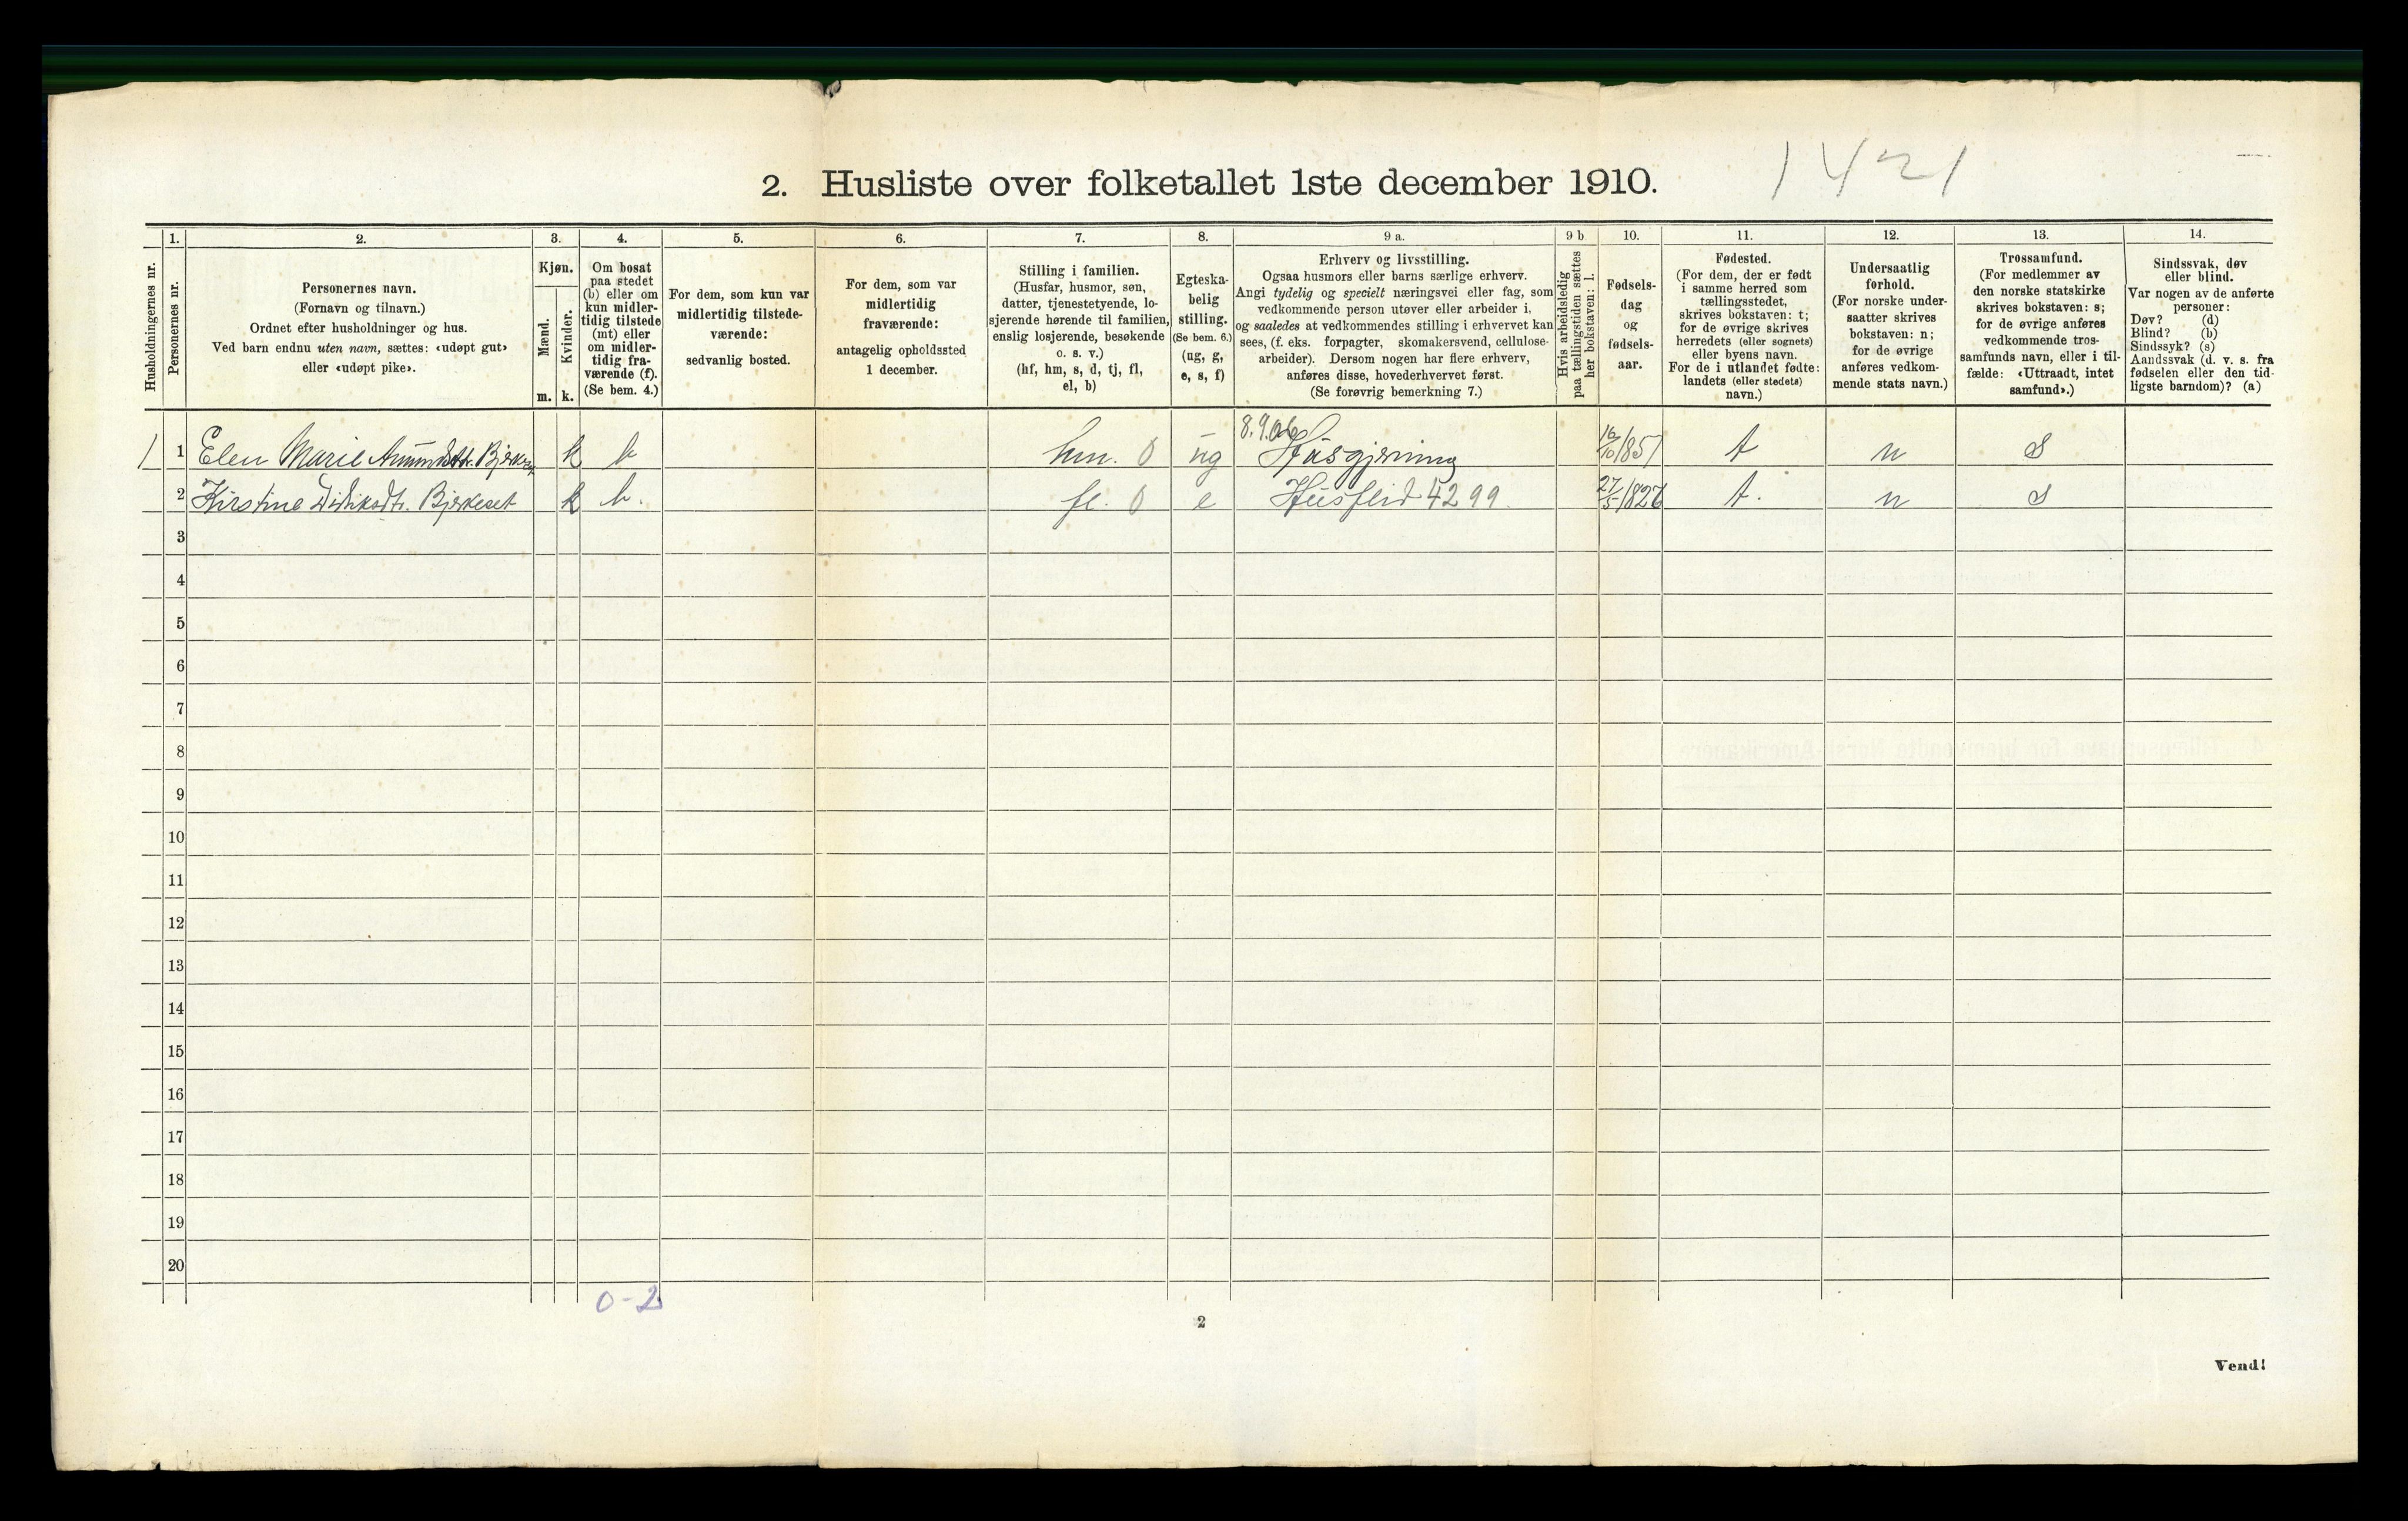 1421
2. Husliste over folketallet 1ste december 1910.
Husholdningernes nr.
1.
Personernes nr.
2.
Personernes navn.
(Fornavn og tilnavn.)
Ordnet efter husholdninger og hus.
Ved barn endnu uten navn, sættes: «udøpt gut»
eller «udøpt pike».
3.
Kjøn.
Mænd.
Kvinder.
m. k.
4.
Om bosat
paa stedet
(b) eller om
kun midler-
tidig tilstede
(mt) eller
om midler-
tidig fra-
værende (f).
(Se bem. 4.)
5.
For dem, som kun var
midlertidig tilstede-
værende:
sedvanlig bosted.
6.
For dem, som var
midlertidig
fraværende:
antagelig opholdssted
1 december.
7.
Stilling i familien.
(Husfar, husmor, søn,
datter, tjenestetyende, lo-
sjerende hørende til familien,
enslig losjerende, besøkende
o. s. v.)
(hf, hm, s, d, tj, fl,
el, b)
8.
Egteska-
belig
stilling.
(Se bem. 6.)
(ug, g,
e, s, f)
9 a.
Erhverv og livsstilling.
Ogsaa husmors eller barns særlige erhverv.
Angi tydelig og specielt næringsvei eller fag, som
vedkommende person utøver eller arbeider i,
og saaledes at vedkommendes stilling i erhvervet kan
sees, (f. eks. forpagter, skomakersvend, cellulose-
arbeider). Dersom nogen har flere erhverv,
anføres disse, hovederhvervet først.
(Se forøvrig bemerkning 7.)
9 b
Hvis arbeidsledig
paa tællingstiden sættes
her bokstaven: l.
10.
Fødsels-
dag
og
fødsels-
aar.
11.
Fødested.
(For dem, der er født
i samme herred som
tællingsstedet,
skrives bokstaven: t;
for de øvrige skrives
herredets (eller sognets)
eller byens navn.
For de i utlandet fødte:
landets (eller stedets)
navn.)
12.
Undersaatlig
forhold.
(For norske under-
saatter skrives
bokstaven: n;
for de øvrige
anføres vedkom-
mende stats navn.)
13.
Trossamfund.
(For medlemmer av
den norske statskirke
skrives bokstaven: s;
for de øvrige anføres
vedkommende tros-
samfunds navn, eller i til-
fælde: «Uttraadt, intet
samfund».)
14.
Sindssvak, døv
eller blind.
Var nogen av de anførte
personer:
Døv? (d)
Blind? (b)
Sindssyk? (s)
Aandssvak (d. v. s. fra
fødselen eller den tid-
ligste barndom)? (a)
1 1 Elen Marie k b hm. 0 ug Husgjerning 16/10 1851 t n s
2 Kirstine Didriksdtr. Bjerkeset k b. fl. 0 e Husflid 4299. 27/5 1826 t. n s
3
4
5
6
7
8
9
10
11
12
13
14
15
16
17
18
19
20
0-2
2
Vend!